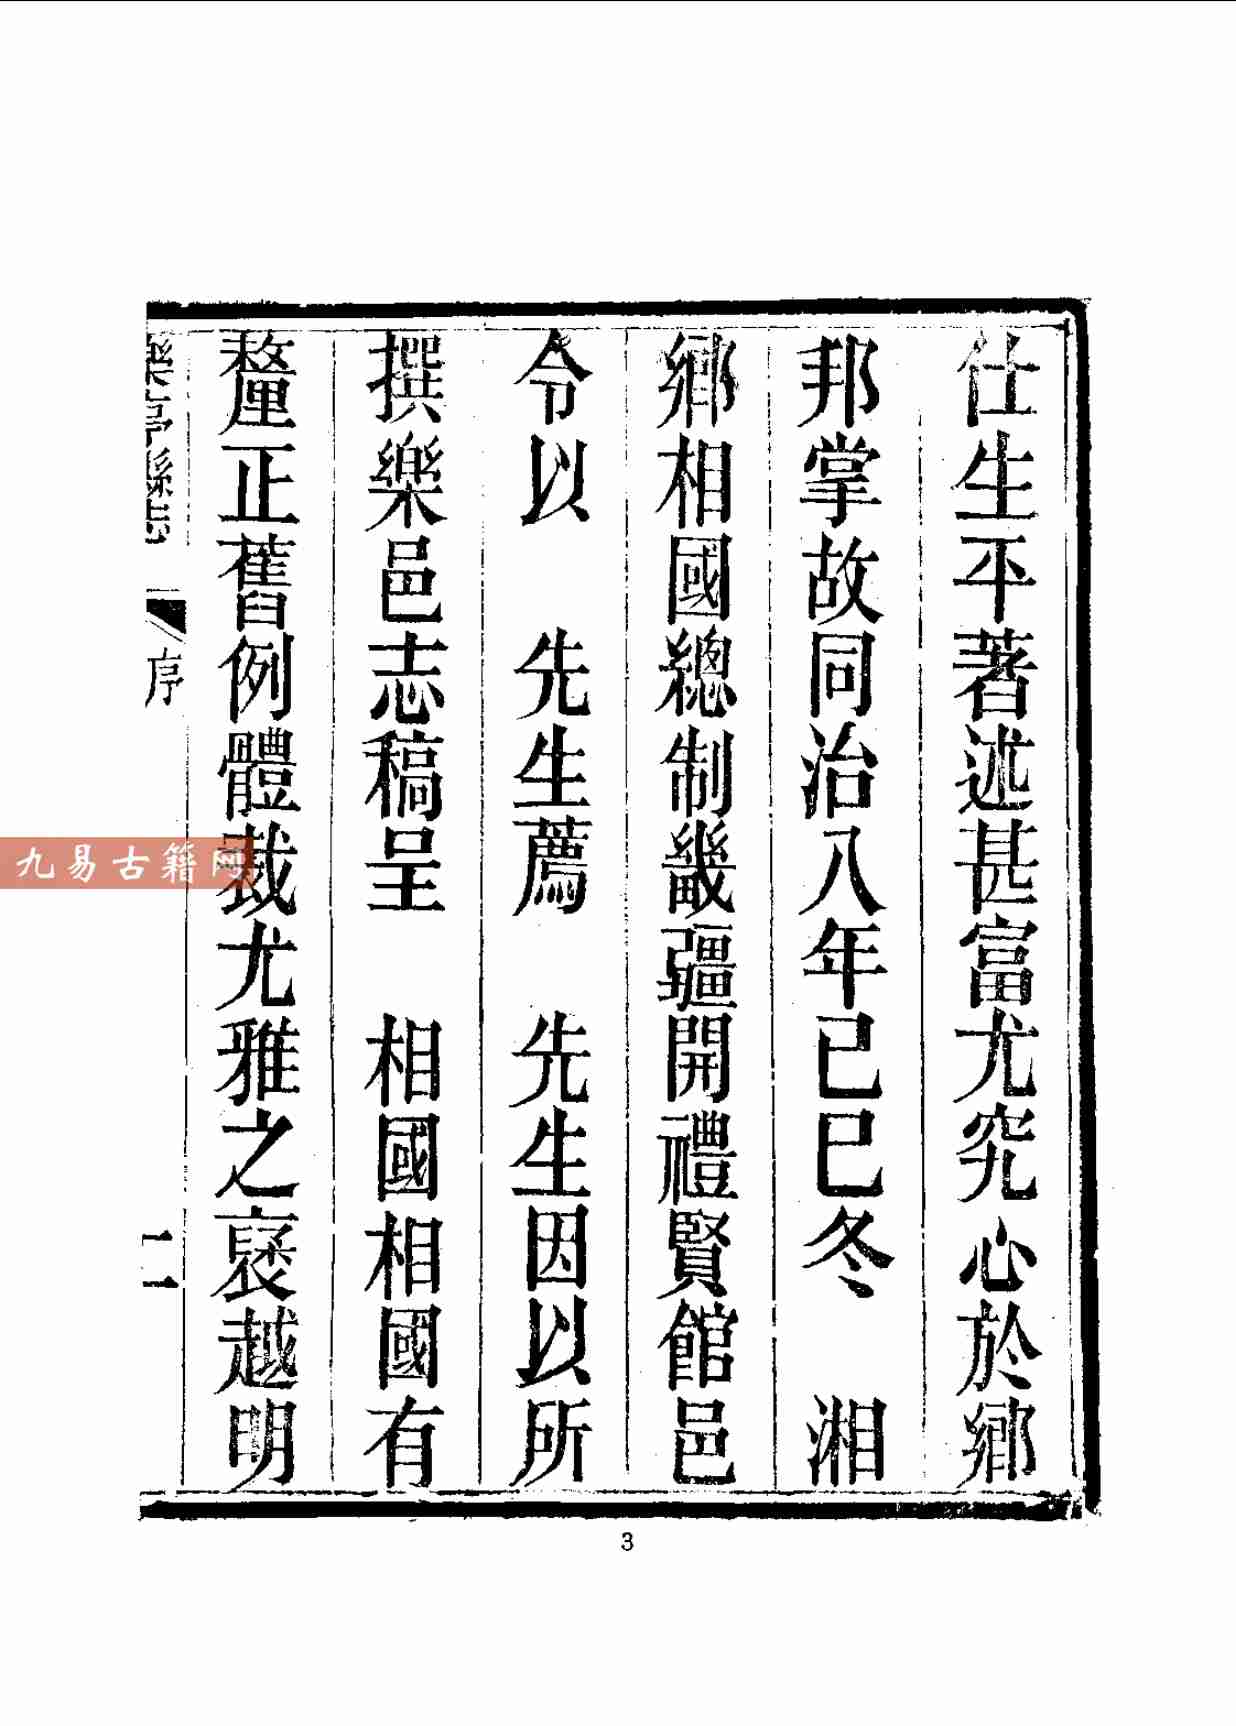 仕生平著述甚富尤究心於鄉
邦掌故同治八年己巳冬 湘
鄉相國總制畿疆開禮賢館邑
令以 先生薦 先生因以所
撰樂邑志稿呈 相國相國有
釐正舊例體裁尤雅之褒越明
樂亭縣志 序 二
九易古籍网
3